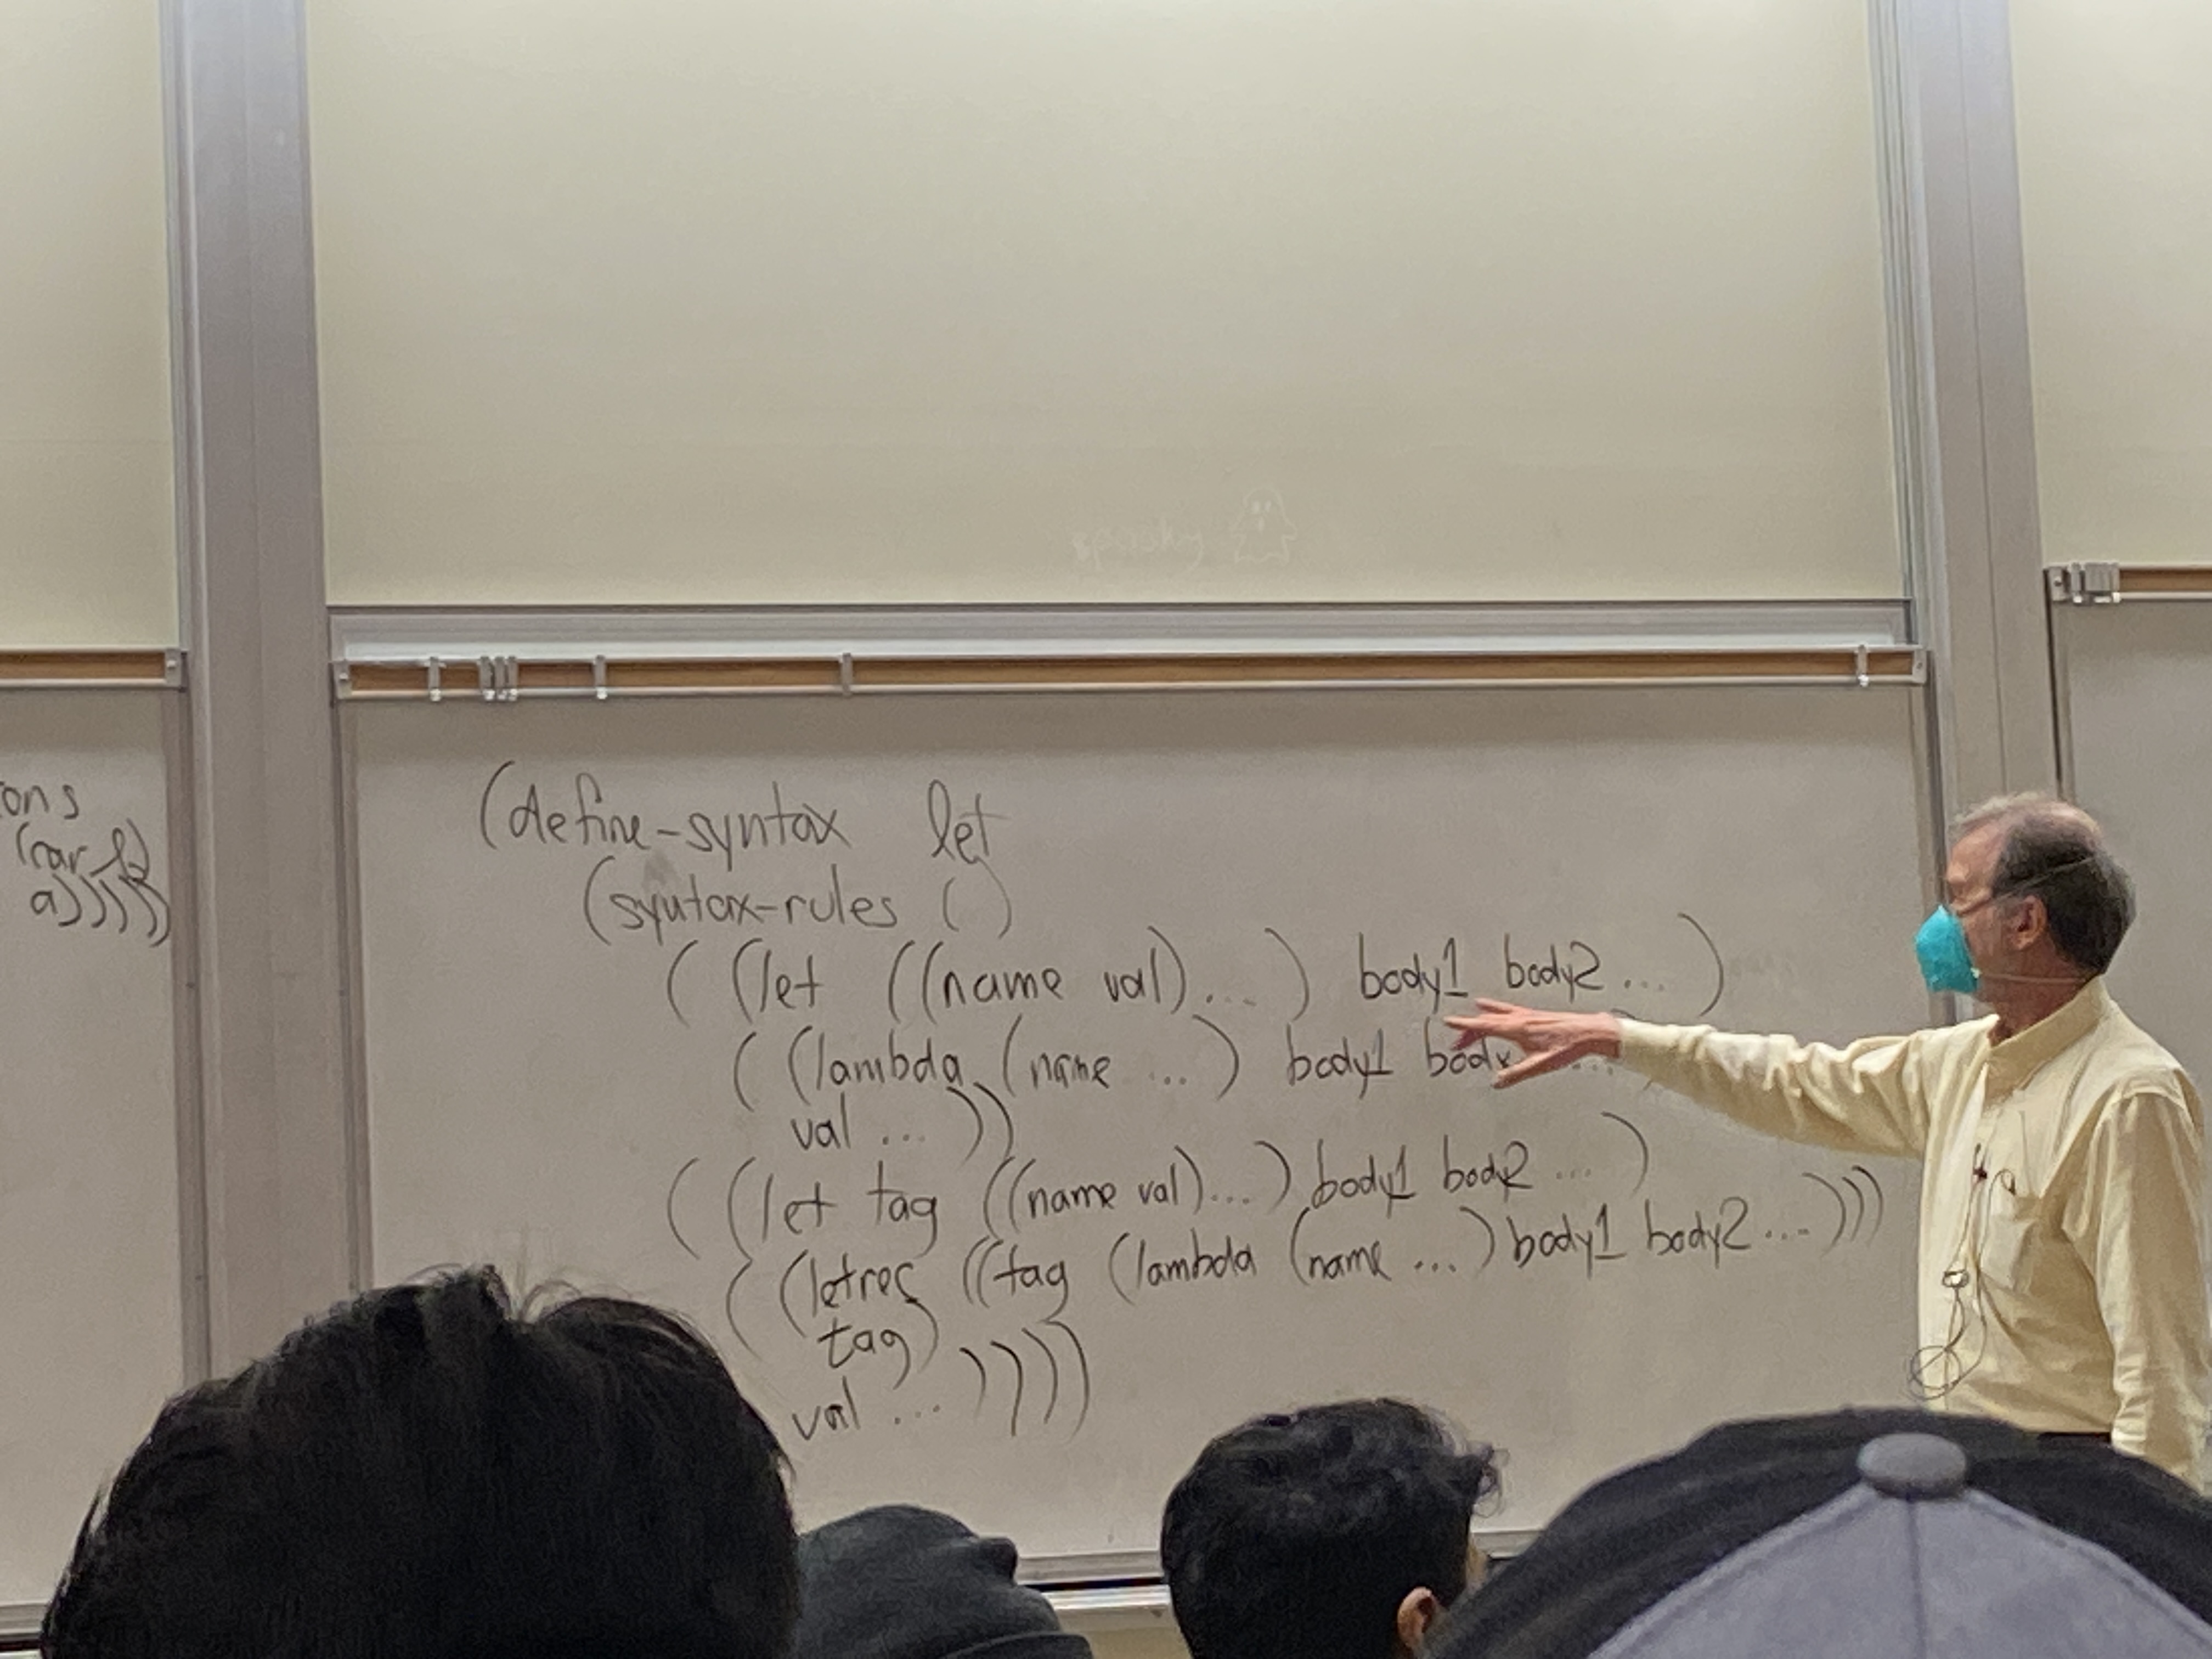 spooky
ons
(car l)
a)))))
(define-syntax let
(syntax-rules ()
((let ((name val)...) body1 body2 ...)
((lambda (name ...) body1 body
val ...))
((let tag ((name val)...) body1 body2 ...)
((letrec ((tag (lambda (name ...) body1 body2 ...)))
tag)
val ...))))